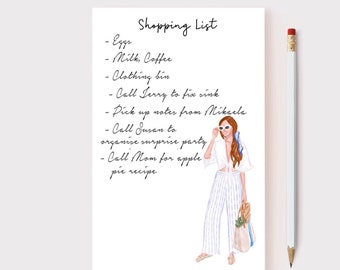 Shopping List
- Eggs
- Milk, Coffee
- Clothing bin
- Call Terry to fix sink
- Pick up notes from Mikaela
- Call Susan to
organise surprise party
- Call Mom for apple
pie recipe